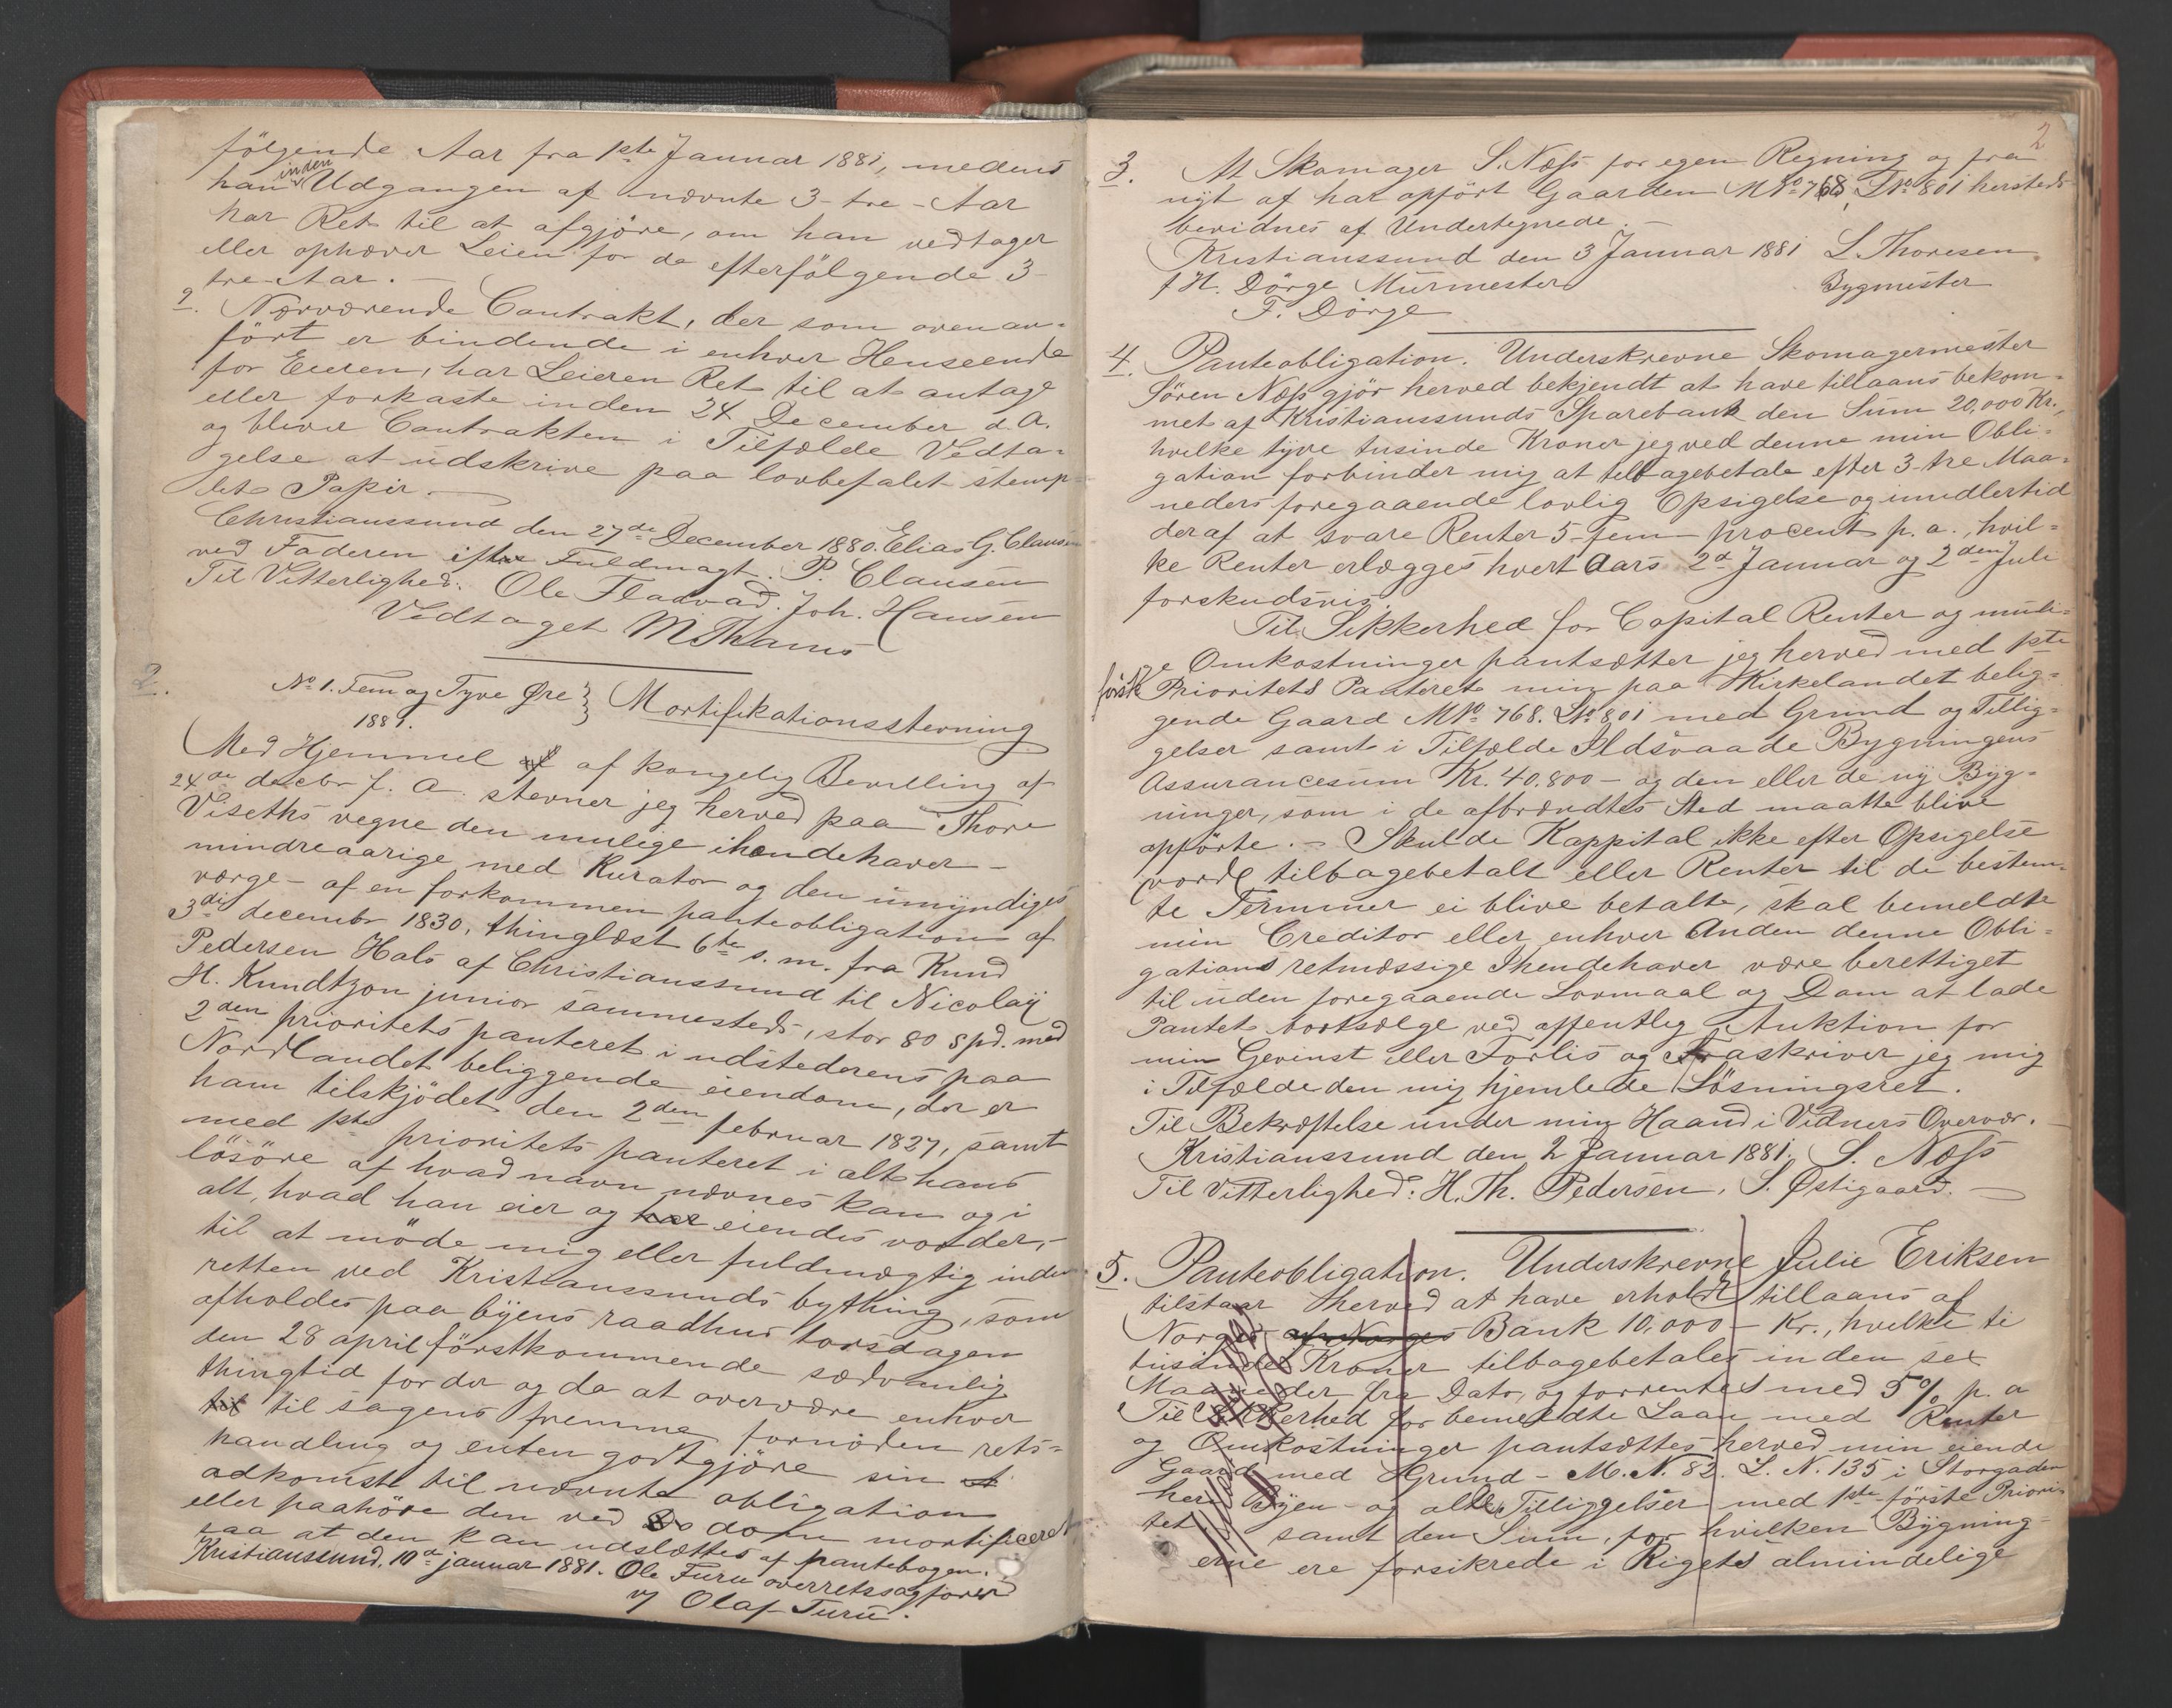 følgende Aar fra 1ste Januar 1881, medens
han inden Udgangen af nævnte 3-tre-Aar
har Ret til at afgjøre, om han vedtager
eller ophæver Leien for de efterfølgende 3
tre-Aar.
9. Nærværende Contrakt, der som ovenan-
ført er bindende i enhver Henseende
for Eieren, har Leieren Ret til at antage
eller forkaste inden 24 December d. A.
og bliver Contrakten i Tilfælde Vedta-
gelse at udskrive paa lovbefalet stemp-
let Papir.
Christianssund den 27de December 1880. Elias G. Clausen
ved Faderen efter Fuldmagt. P. Clausen
Til Vitterlighed: Ole Fladvad. Joh. Hansen
Vedtaget M Thams
2. No 1. Fem og Tyve Øre } Mortifikationsstevning
1881.
Med Hjemmel af kongelig Bevilling af
24de decbr f. A. stevner jeg herved paa Thore
Viseths vegne den mulige ihændehaver –
mindreaarige med Kurator og den umyndiges
værge – af en forkommen panteobligation af
3die decembr 1830, thinglæst 6te s. m. fra Knud
Pedersen Hals af Christianssund til Nicolaÿ
H. Knudtzon junior sammesteds, stor 80 spd. med
2den prioritets panteret i udstederens paa
Nordlandet beliggende eiendom, der er
ham tilskjødet den 2den februar 1827, samt
med 1ste prioritets panteret i alt hans
løsøre af hvad navn nævnes kan og i
alt, hvad han eier og har eiendes vorder, –
til at møde mig eller fuldmægtig inden
retten ved Kristianssunds bything, som
afholdes paa byens raadhus torsdagen
den 28 april førstkommende sædvanlig
thingtid for der og da at overvære enhver
til til sagens fremme fornøden rets-
handling og enten godtgjøre sin
adkomst til nævnte obligation
eller paahøre den ved Do dom mortificeret
saa at den kan udslættes af pantebogen.
Kristianssund, 10de januar 1881. Ole Furu overretssagfører
v/ Olaf Furu.
2
3. At Skomager S. Næss for egen Regning og fra
nyt af har opført Gaarden M No 768, L No 801 hersteds
bevidnes af Undertegnede. –
Kristianssund den 3 Januar 1881 L. Thoresen
f H. Dörge Murmester Bygmester
F. Dörge
4. Panteobligation. Underskrevne Skomagermester
Sören Næss gjør herved bekjendt at have tillaans bekom-
met af Kristianssunds Sparebank den Sum 20,000 Kr.,
hvilke tyve tusinde Kroner jeg ved denne min Obli-
gation forbinder mig at tilbagebetale efter 3-tre Maa-
neders foregaaende lovlig Opsigelse og imidlertid
deraf at svare Renter 5-fem procent p. a., hvil-
ke Renter erlægges hvert Aars 2d Januar og 2den Juli
forskudsvis.
Til Sikkerhed for Capital Renter og muli-
ge Omkostninger pantsætter jeg herved med 1ste
første Prioritets Panteret min paa Kirkelandet belig-
gende Gaard M No 768. L No 801 med Grund og Tillig-
gelser samt i Tilfælde Ildsvaade Bygningens
Assurancesum Kr. 40.800 – og den eller de ny Byg-
ninger, som i de afbrændtes Sted maatte blive
opførte. – Skulde Kappital ikke efter Opsigelse
vorde tilbagebetalt eller Renter til de bestem-
te Terminer ei blive betalte, skal bemeldte
min Creditor eller enhver Anden denne Obli-
gations retmæssige Ihendehaver være berettiget
til uden foregaaende Lovmaal og Dom at lade
Pantet bortsælge ved offentlig Auktion for
min Gevinst eller Forlis og Fraskriver jeg mig
i Tilfælde den mig hjemlede Løsningsret.
Til Bekræftelse under min Haand i Vidners Overvær.
Kristianssund den 2 Januar 1881. S. Næss
Til Vitterlighed: H. Th. Pedersen, S. Østigaard. –
5. Panteobligation. Underskrevne Julie Eriksen
tilstaar herved at have erholdt tillaans af
Norges af Norges Bank 10,000 – Kr., hvilke ti
tusinde Kroner tilbagebetales inden sex
Maaneder fra Dato, og forrentes med 5% p. a
Til Sikkerhed for bemeldte Laan med Renter
og Omkostninger pantsættes herved min eiende
Gaard med Grund – M. N. 82. L. N. 135 i Storgaden
her i Byen – og alle Tilliggelser med 1ste første Priori-
tet samt den Sum, for hvilken Bygning-
erne ere forsikrede i Rigets almindelige